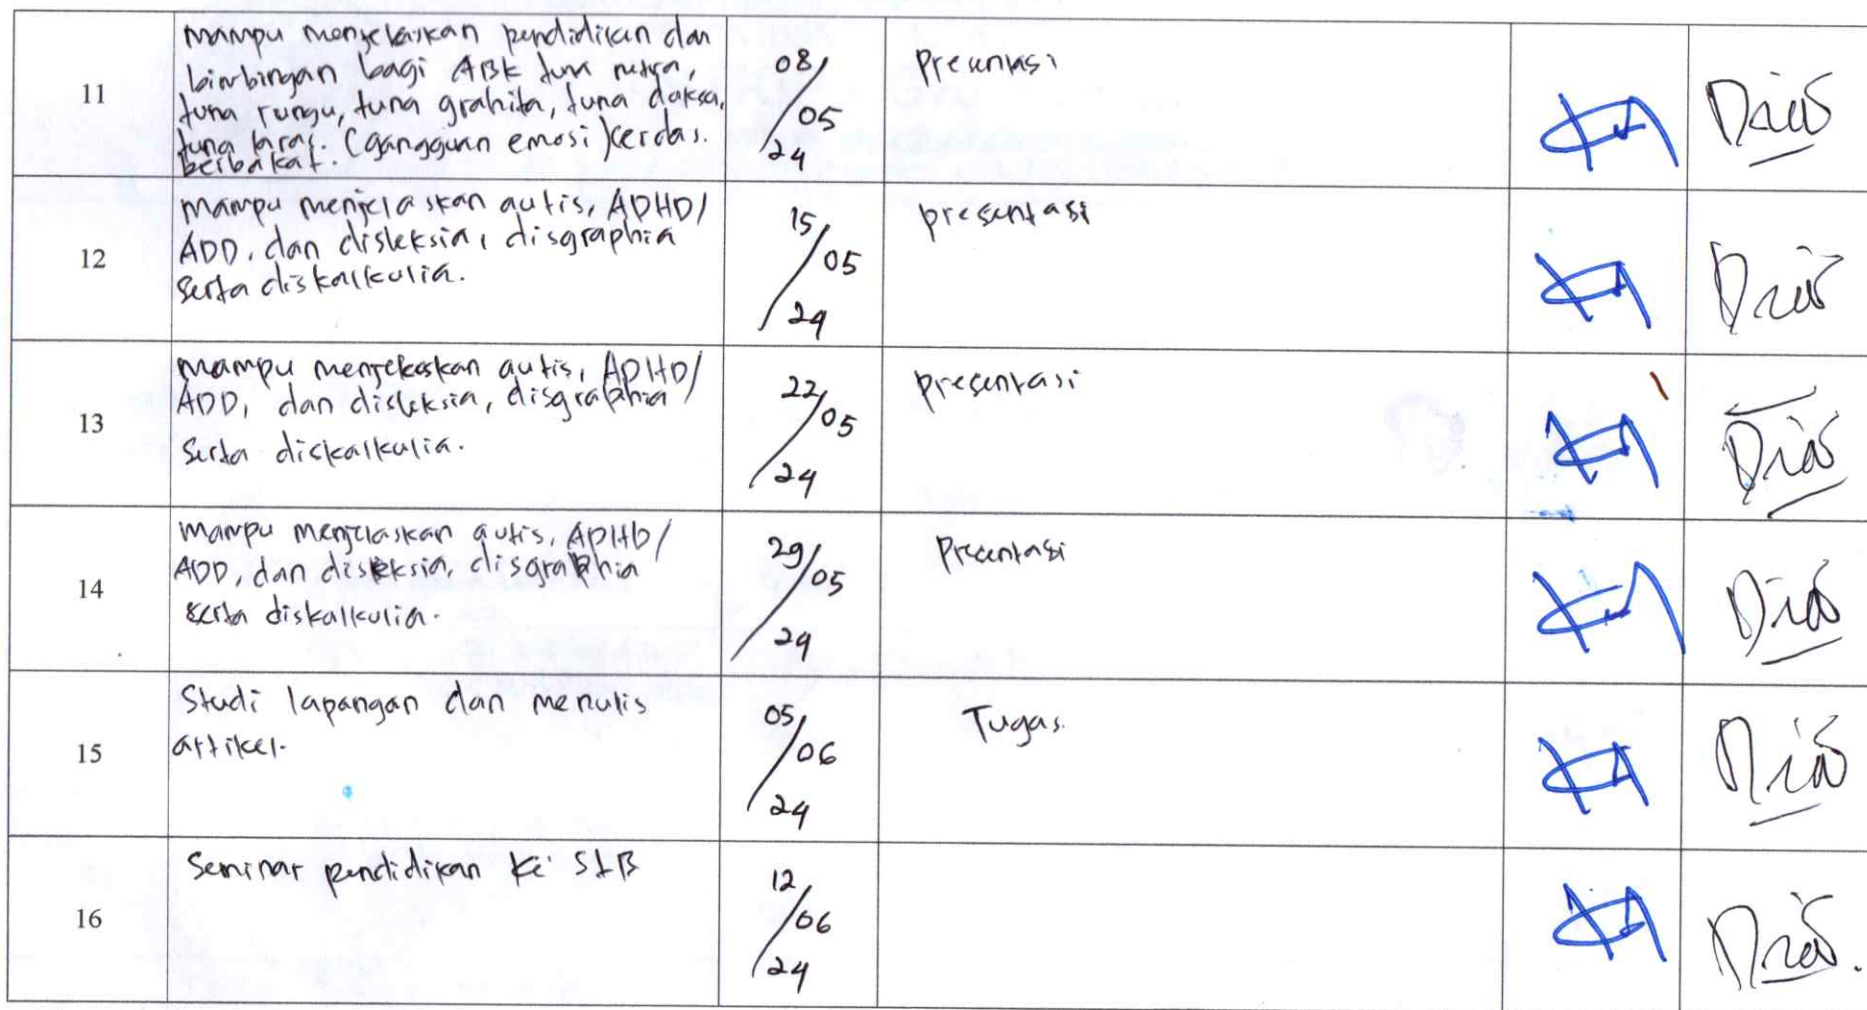 11
mampu menjelaskan pendidikan dan
bimbingan bagi ABK tuna netra,
tuna rungu, tuna grahita, tuna daksa,
tuna laras. (gangguan emosi) cerdas.
berbakat.
08/05/24
Presentasi
12
mampu menjelaskan autis, ADHD/
ADD, dan disleksia, disgraphia
serta diskalkulia.
15/05/24
presentasi
13
mampu menjelaskan autis, ADHD/
ADD, dan disleksia, disgraphia
serta diskalkulia.
22/05/24
presentasi
14
mampu menjelaskan autis, ADHD/
ADD, dan disleksia, disgraphia
serta diskalkulia.
29/05/24
Presentasi
15
Studi lapangan dan menulis
artikel.
05/06/24
Tugas.
16
Seminar pendidikan ke SLB
12/06/24